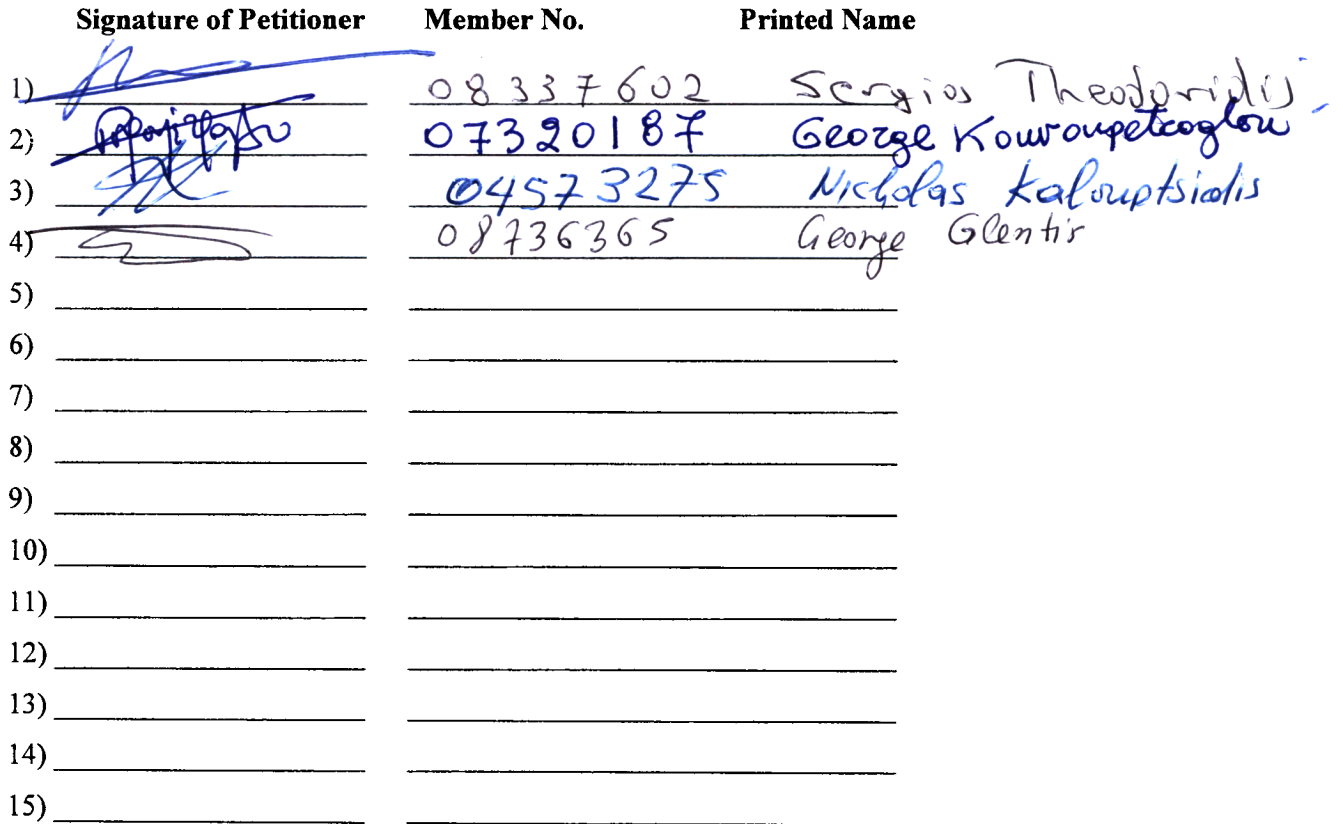 Signature of Petitioner Member No. Printed Name
1) 08337602 Sergios Theodoridis
2) 07320187 George Kouroupetroglou
3) 04573275 Nicholas Kalouptsidis
4) 08736365 George Glentis
5)
6)
7)
8)
9)
10)
11)
12)
13)
14)
15)